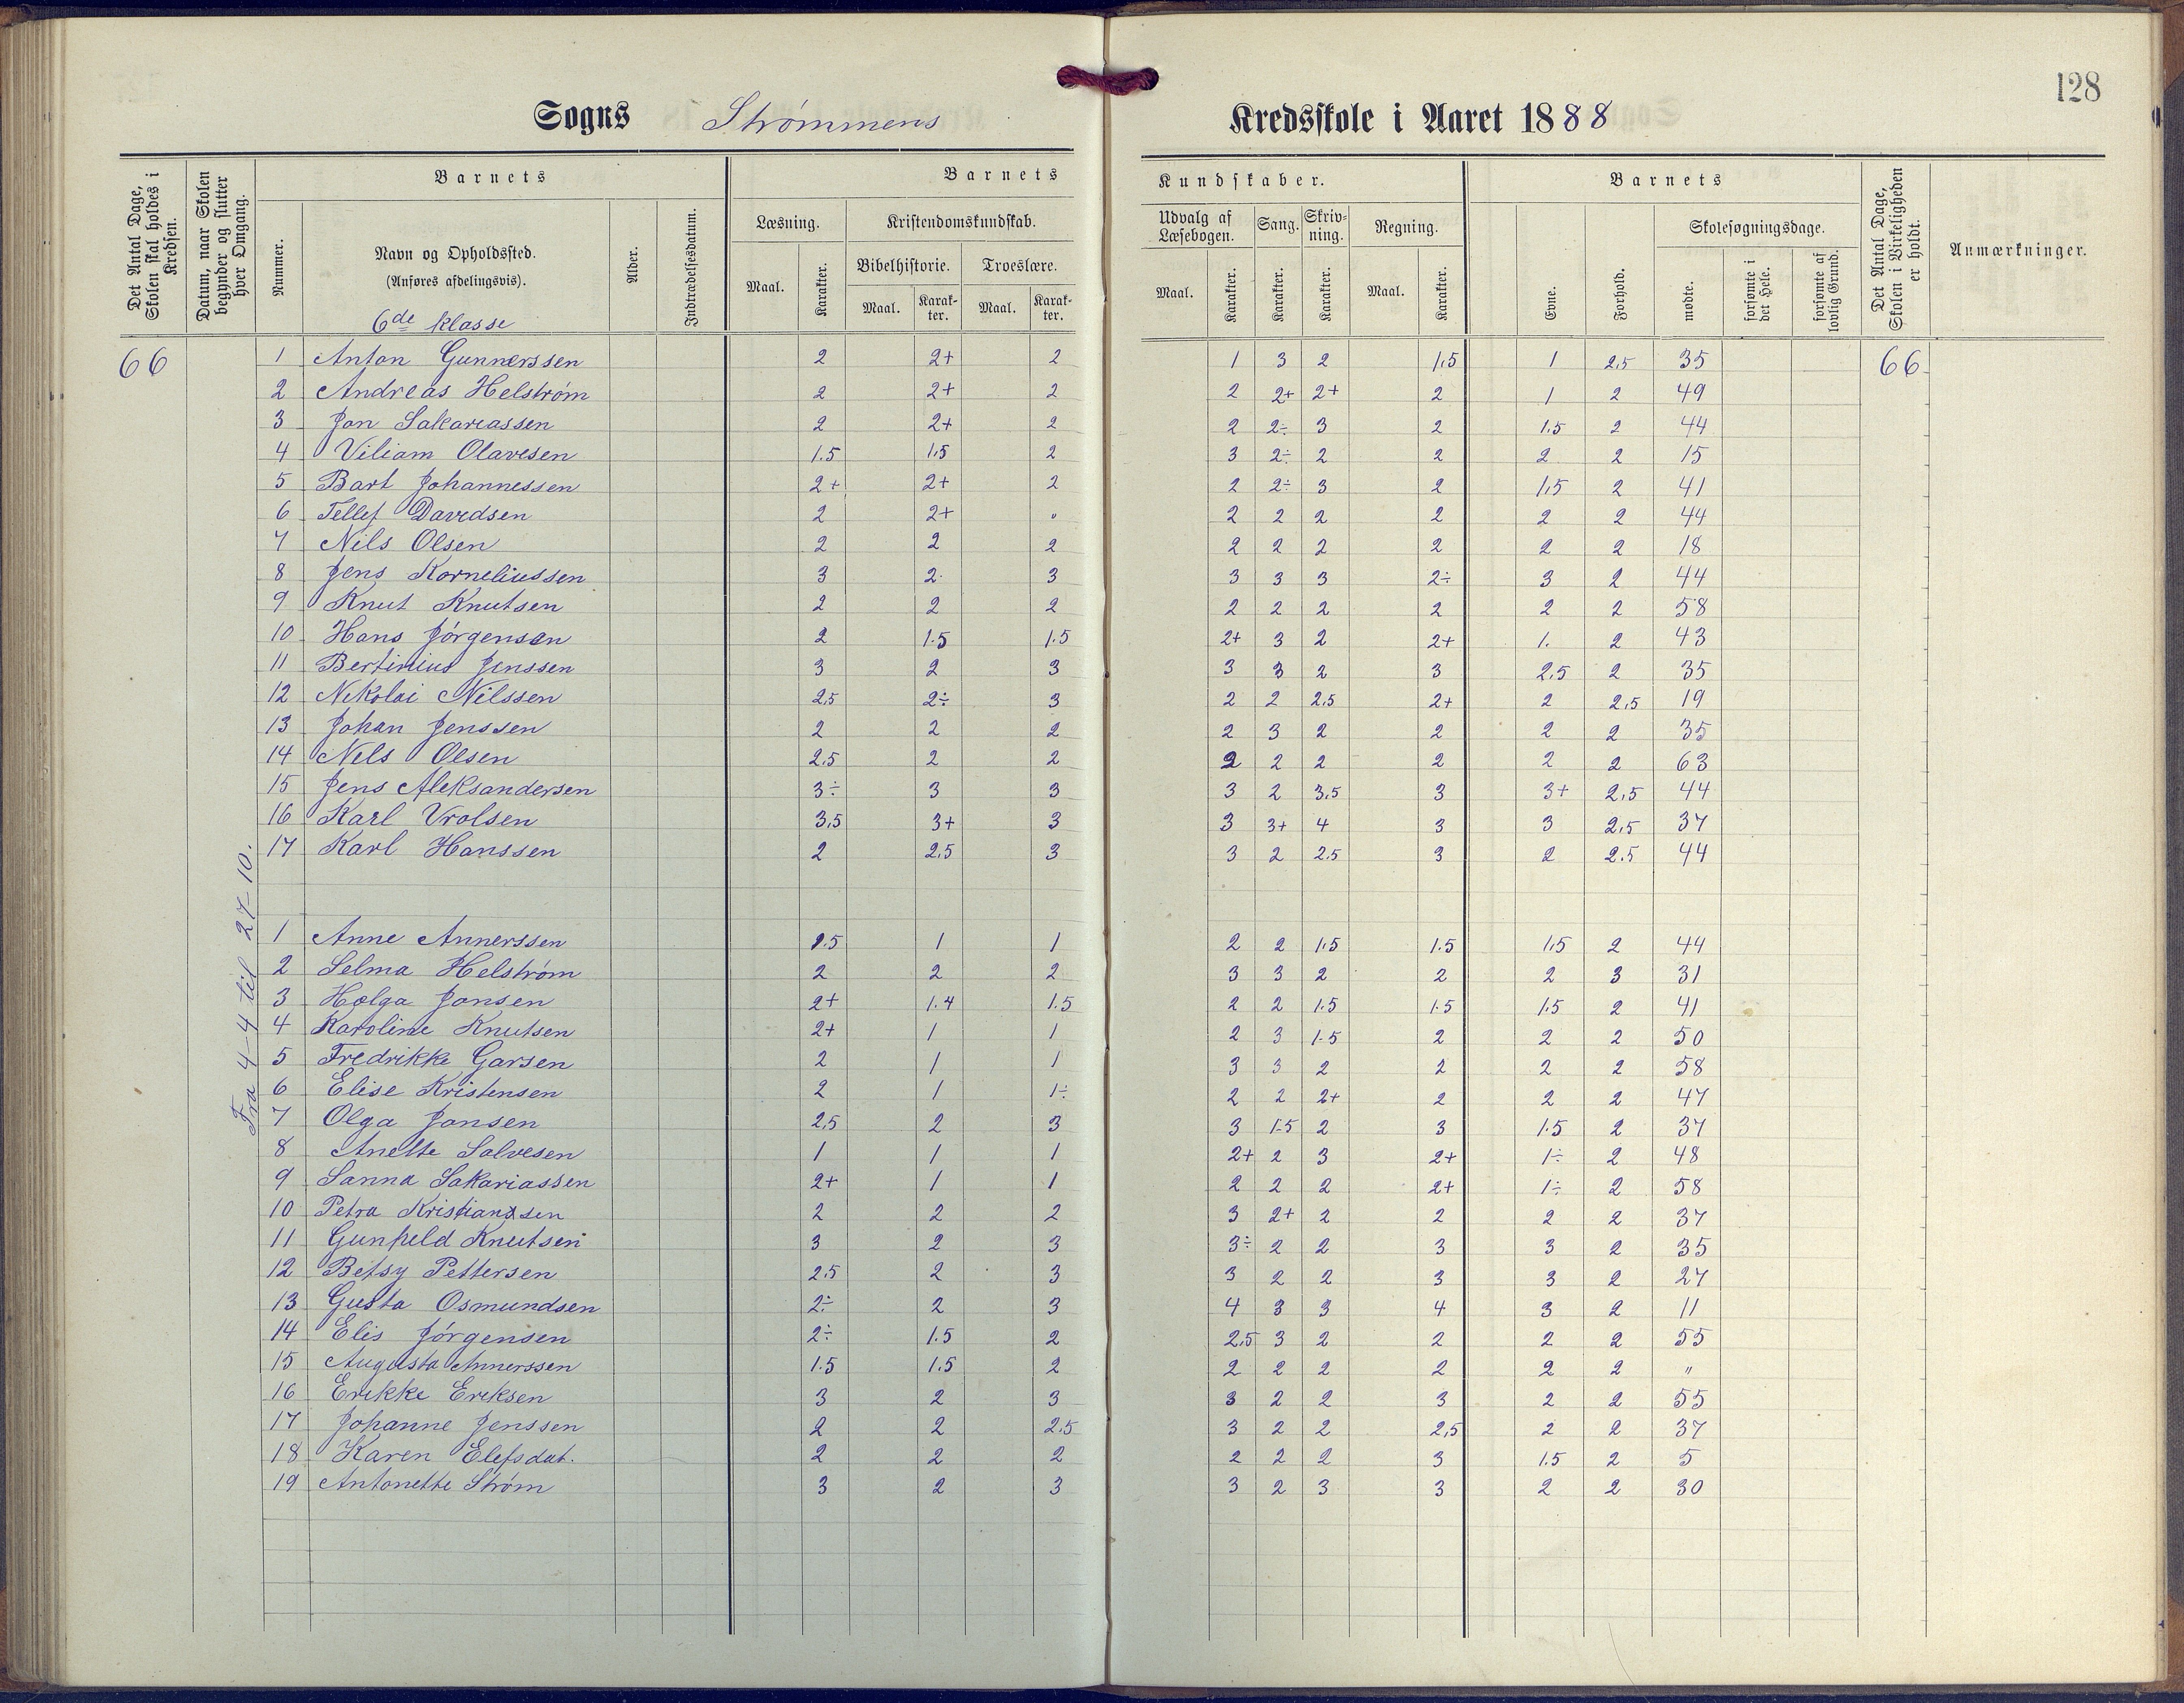 128
Sogns Strømmens Kredsskole i Aaret 1888
Det Antal Dage, Skolen skal holdes i Kredsen.
Datum, naar Skolen begynder og slutter hver Omgang.
Barnets
Nummer.
Navn og Opholdssted.
(Anføres afdelingsvis).
6de klasse
Alder.
Indtrædelsesdatum.
Barnets Kundskaber.
Læsning.
Maal.
Karakter.
Kristendomskundskab.
Bibelhistorie.
Maal.
Karakter.
Troeslære.
Maal.
Karakter.
Udvalg af Læsebogen.
Maal.
Karakter.
Sang.
Karakter.
Skrivning.
Karakter.
Regning.
Maal.
Karakter.
Barnets
Evne.
Forhold.
Skolesøgningsdage.
mødte.
forsømte i det Hele.
forsømte af lovlig Grund.
Det Antal Dage, Skolen i Virkeligheden er holdt.
Anmærkninger.
66
Fra 4-4 til 27-10.
1 Anton Gunnerssen 2 2+ 2 1 3 2 1,5 1 2,5 35 66
2 Andreas Helstrøm 2 2+ 2 2 2+ 2+ 2 1 2 49
3 Jon Sakariassen 2 2+ 2 2 2÷ 3 2 1.5 2 44
4 Viliam Olavesen 1.5 1,5 2 3 2÷ 2 2 2 2 15
5 Bart Johannessen 2+ 2+ 2 2 2÷ 3 2 1,5 2 41
6 Tellef Davidsen 2 2+ " 2 2 2 2 2 2 44
7 Nils Olsen 2 2 2 2 2 2 2 2 2 18
8 Jens Korneliussen 3 2 3 3 3 3 2÷ 3 2 44
9 Knut Knutsen 2 2 2 2 2 2 2 2 2 58
10 Hans Jørgensen 2 1.5 1.5 2+ 3 2 2+ 1. 2 43
11 Bertinius Jenssen 3 2 3 3 3 2 3 2,5 2 35
12 Nikolai Nilssen 2,5 2÷ 3 2 2 2,5 2+ 2 2,5 19
13 Johan Jenssen 2 2 2 2 3 2 2 2 2 35
14 Nels Olsen 2.5 2 2 2 2 2 2 2 2 63
15 Jens Aleksandersen 3÷ 3 3 3 2 3,5 3 3+ 2,5 44
16 Karl Vrolsen 3,5 3+ 3 3 3+ 4 3 3 2,5 37
17 Karl Hanssen 2 2,5 3 3 2 2.5 3 2 2.5 44
1 Anne Annerssen 1.5 1 1 2 2 1,5 1.5 1,5 2 44
2 Selma Helstrøm 2 2 2 3 3 2 2 2 3 31
3 Holga Jonsen 2+ 1.4 1.5 2 2 1.5 1.5 1.5 2 41
4 Karoline Knutsen 2+ 1 1 2 3 1.5 2 2 2 50
5 Fredrikke Garsen 2 1 1 3 3 2 2 2 2 58
6 Elise Kristensen 2 1 1÷ 2 2 2+ 2 2 2 47
7 Olga Jonsen 2,5 2 3 3 1.5 2 3 1.5 2 37
8 Anette Salvesen 1 1 1 2+ 2 3 2+ 1÷ 2 48
9 Sanna Sakariassen 2+ 1 1 2 2 2 2+ 1÷ 2 58
10 Petra Kristianssen 2 2 2 3 2+ 2 2 2 2 37
11 Gunhild Knutsen 3 2 3 3÷ 2 2 3 3 2 35
12 Betsy Pettersen 2.5 2 3 3 2 2 3 3 2 27
13 Gusta Osmundsen 2÷ 2 3 4 3 3 4 3 2 11
14 Elis Jørgensen 2÷ 1.5 2 2,5 3 2 2 2 2 55
15 Augusta Annerssen 1.5 1.5 2 2 2 2 2 2 2 "
16 Erikke Eriksen 3 2 3 3 2 2 3 2 2 55
17 Johanne Jenssen 2 2 2.5 3 2 2 2,5 2 2 37
18 Karen Elefsdat. 2 2 2 2 2 2 3 1.5 2 5
19 Antonette Strøm 3 2 3 3 2 3 3 2 2 30